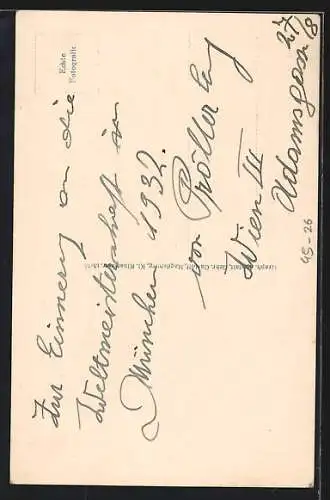 Echte
Fotografie
Zur Einnerung an die
Weltmeisterschaft in
München 1932.
von Pröller
Wien III
Adamsgasse
27/8
95-26